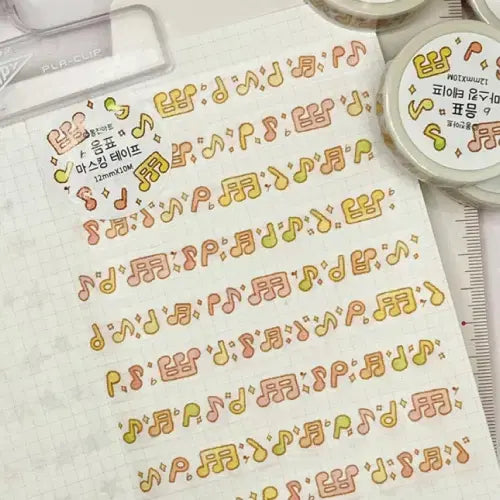 PLA-CLIP
음표
마스킹 테이프
12mmX10M
음표
마스킹 테이프
12mmX10M